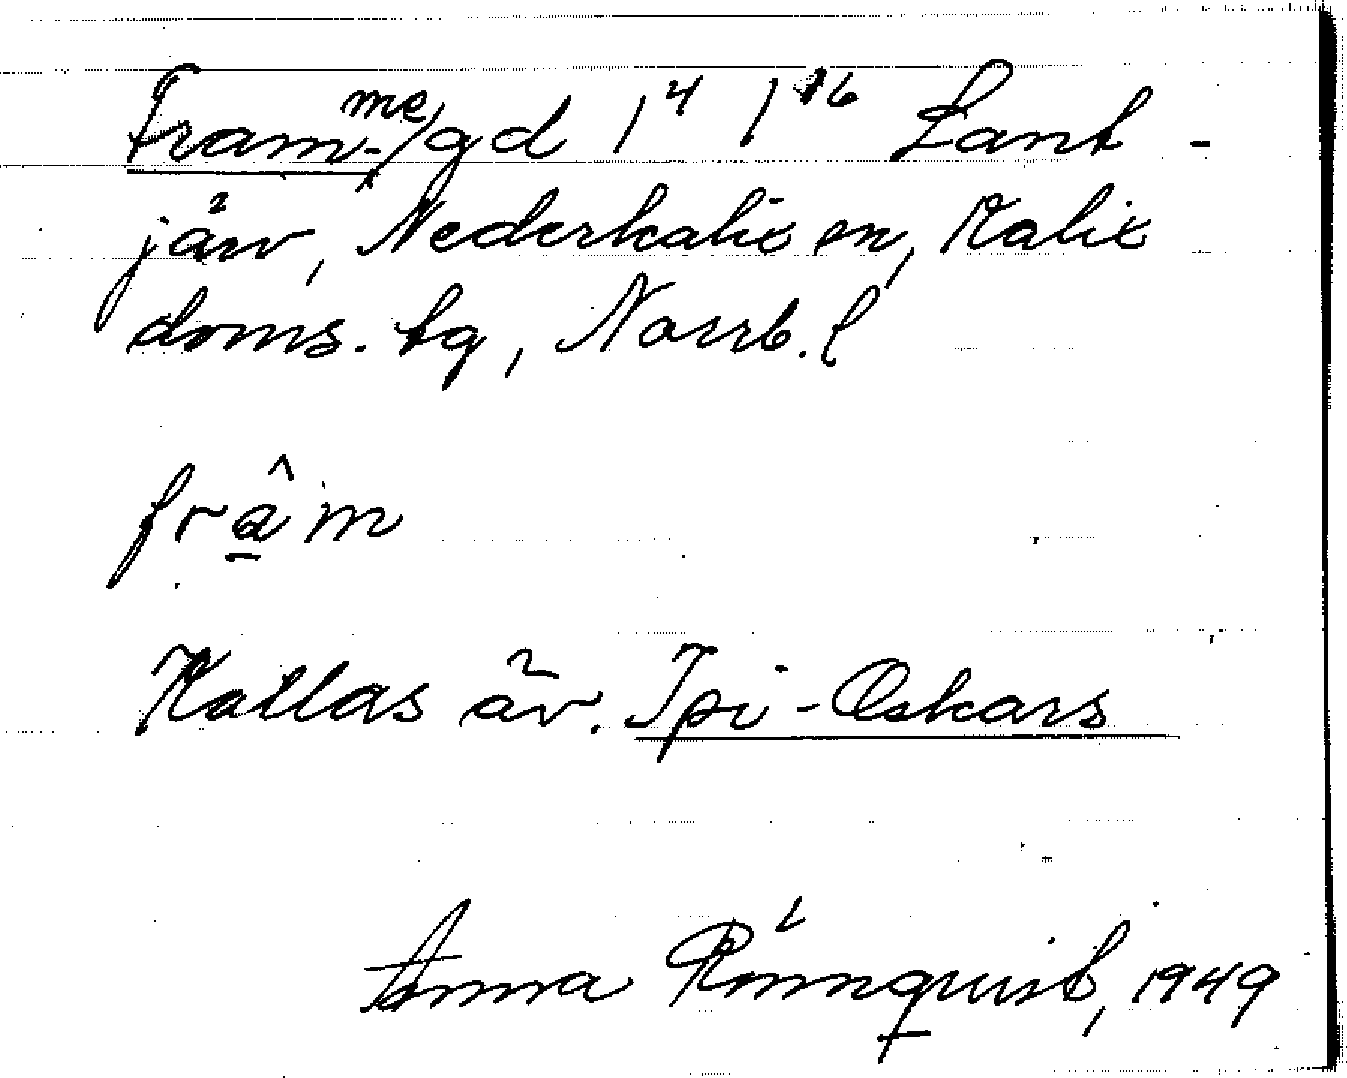 Framme/gd 1⁴ 1¹⁶ Lant-
järv, Nederkalix sn, Kalix
doms. tg, Norrb. l
frâ̱m
Kallas äv. Ipi-Oskars
Anna Rönnqvist, 1949